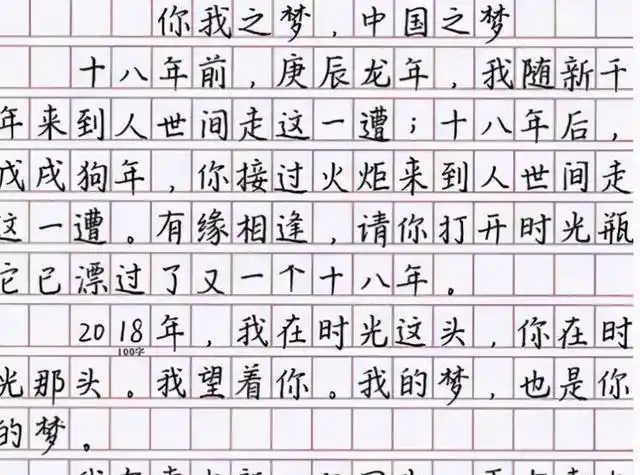 你我之梦，中国之梦
十八年前，庚辰龙年，我随新千
年来到人世间走这一遭；十八年后，
戊戌狗年，你接过火炬来到人世间走
这一遭。有缘相逢，请你打开时光瓶
它已漂过了又一个十八年。
2018年，我在时光这头，你在时
100字
光那头。我望着你。我的梦，也是你
的梦。